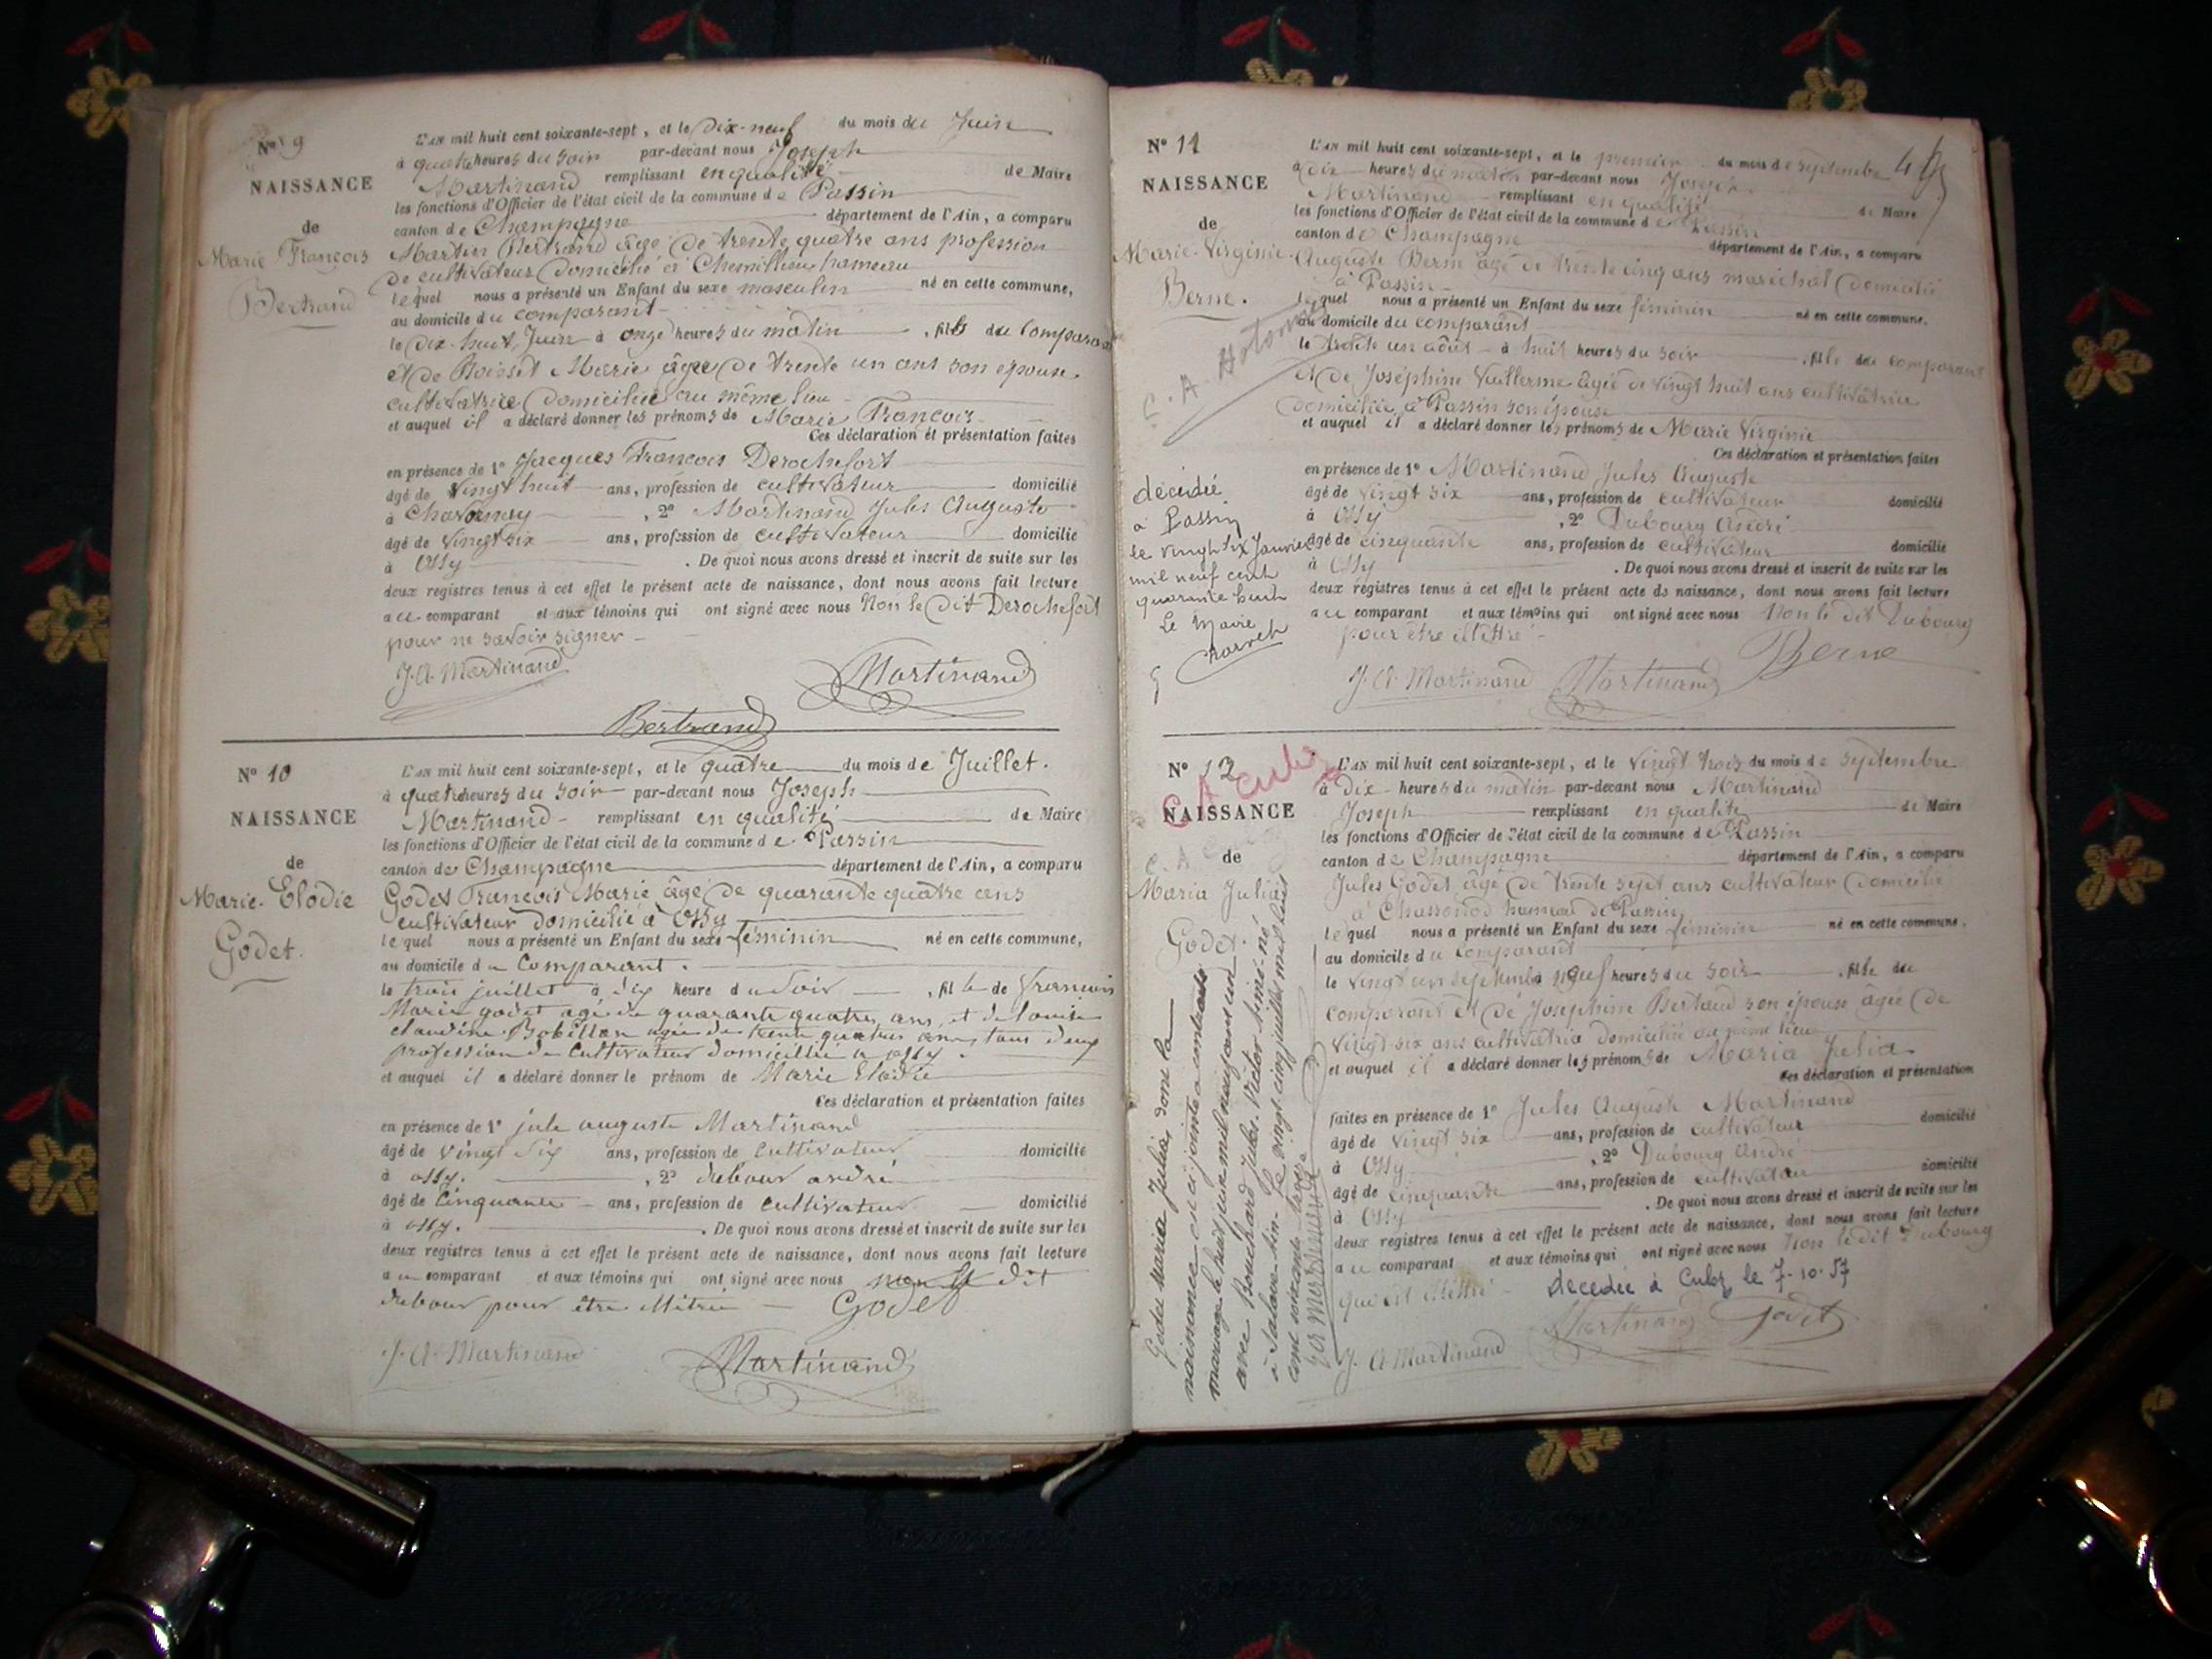 N° 9
NAISSANCE
de
Marie François
Bertrand
L'AN mil huit cent soixante-sept, et le dix-neuf du mois de Juin
à quatre heures du soir par-devant nous Joseph
Martinand remplissant en qualité de Maire
les fonctions d'Officier de l'état civil de la commune de Passin
canton de Champagne département de l'Ain, a comparu
Martin Bertrand âgé de trente quatre ans profession
de cultivateur domicilié à Chemillieu hameau
lequel nous a présenté un Enfant du sexe masculin né en cette commune,
au domicile du comparant
le dix-huit Juin à onze heures du matin , fils du Comparant
et de Boisset Marie âgée de trente un ans son épouse
cultivatrice domiciliée au même lieu
et auquel il a déclaré donner les prénoms de Marie François
Ces déclaration et présentation faites
en présence de 1° Jacques François Derochefort
âgé de vingt huit ans, profession de cultivateur domicilié
à Chavornay , 2° Martinand Jules Auguste
âgé de vingt six ans, profession de cultivateur domicilié
à Ossy . De quoi nous avons dressé et inscrit de suite sur les
deux registres tenus à cet effet le présent acte de naissance, dont nous avons fait lecture
au comparant et aux témoins qui ont signé avec nous Non le dit Derochefort
pour ne savoir signer
J. A. Martinand Martinand
Bertrand
N° 10
NAISSANCE
de
Marie-Elodie
Godet.
L'AN mil huit cent soixante-sept, et le quatre du mois de Juillet.
à quatre heures du soir par-devant nous Joseph
Martinand remplissant en qualité de Maire
les fonctions d'Officier de l'état civil de la commune de Passin
canton de Champagne département de l'Ain, a comparu
Godet François Marie âgé de quarante quatre ans
cultivateur domicilié à Ossy
lequel nous a présenté un Enfant du sexe féminin né en cette commune,
au domicile du Comparant.
le trois juillet à dix heure du Soir , fille de francois
Marie godet agé de quarante quatre ans, et de louise
claudine Bobillon agée de trente quatres ans tous deux
profession de Cultivateur domicillié a ossy.
et auquel il a déclaré donner le prénom de Marie Elodie
Ces déclaration et présentation faites
en présence de 1° jule auguste Martinand
âgé de vingt Six ans, profession de Cultivateur domicilié
à ossy. , 2° dubour andré
âgé de Cinquante ans, profession de Cultivateur domicilié
à ossy. . De quoi nous avons dressé et inscrit de suite sur les
deux registres tenus à cet effet le présent acte de naissance, dont nous avons fait lecture
au comparant et aux témoins qui ont signé avec nous non le dit
dubour pour être illétré Godet
J. A. Martinand Martinand
N° 11
NAISSANCE
de
Marie-Virginie
Berne.
C. A.
décédée
à Passin
le vingt six Janvier
mil neuf cent
quarante huit
Le Maire
L'AN mil huit cent soixante-sept, et le premier du mois de septembre
à dix heures du matin par-devant nous Joseph
Martinand remplissant en qualité de Maire
les fonctions d'Officier de l'état civil de la commune de Passin
canton de Champagne département de l'Ain, a comparu
Auguste Berne âgé de trente cinq ans maréchal domicilié
à Passin
lequel nous a présenté un Enfant du sexe féminin né en cette commune,
au domicile du comparant
le trente un août à huit heures du soir , fille du comparant
et de Joséphine Vuillerme âgée de vingt huit ans cultivatrice
domiciliée à Passin son épouse
et auquel il a déclaré donner les prénoms de Marie Virginie
Ces déclaration et présentation faites
en présence de 1° Martinand Jules Auguste
âgé de vingt six ans, profession de cultivateur domicilié
à Ossy , 2° Dubourg André
âgé de cinquante ans, profession de cultivateur domicilié
à Ossy . De quoi nous avons dressé et inscrit de suite sur les
deux registres tenus à cet effet le présent acte de naissance, dont nous avons fait lecture
au comparant et aux témoins qui ont signé avec nous Non le dit Dubourg
pour être illettré
J. A. Martinand Martinand Berne
N° 12
C A Culoz
NAISSANCE
de
Maria Julia
Godet
Godet Maria Julia, dont la
naissance est ci jointe a contracté
mariage le huit juin mil neuf cent un
avec Bouchard Jules-Victor-Aimé-né
à Salave le vingt cinq juillet mil huit
cent soixante treize
L'AN mil huit cent soixante-sept, et le vingt trois du mois de septembre
à dix heures du matin par-devant nous Martinand
Joseph remplissant en qualité de Maire
les fonctions d'Officier de l'état civil de la commune de Passin
canton de Champagne département de l'Ain, a comparu
Jules Godet âgé de trente sept ans cultivateur domicilié
à Chassonod hameau de Passin
lequel nous a présenté un Enfant du sexe féminin né en cette commune,
au domicile du comparant
le vingt un septembre à neuf heures du soir , fille du
comparant et de Joséphine Bertaud son épouse âgée de
vingt-six ans cultivatrice domiciliée au même lieu
et auquel il a déclaré donner les prénoms de Maria Julia
Ces déclaration et présentation
faites en présence de 1° Jules Auguste Martinand
âgé de vingt six ans, profession de cultivateur domicilié
à Ossy , 2° Dubourg André
âgé de cinquante ans, profession de cultivateur domicilié
à Ossy . De quoi nous avons dressé et inscrit de suite sur les
deux registres tenus à cet effet le présent acte de naissance, dont nous avons fait lecture
au comparant et aux témoins qui ont signé avec nous Non le dit Dubourg
qui est illettré Décédée à Culoz le 7-10-57
J. A Martinand Martinand Godet